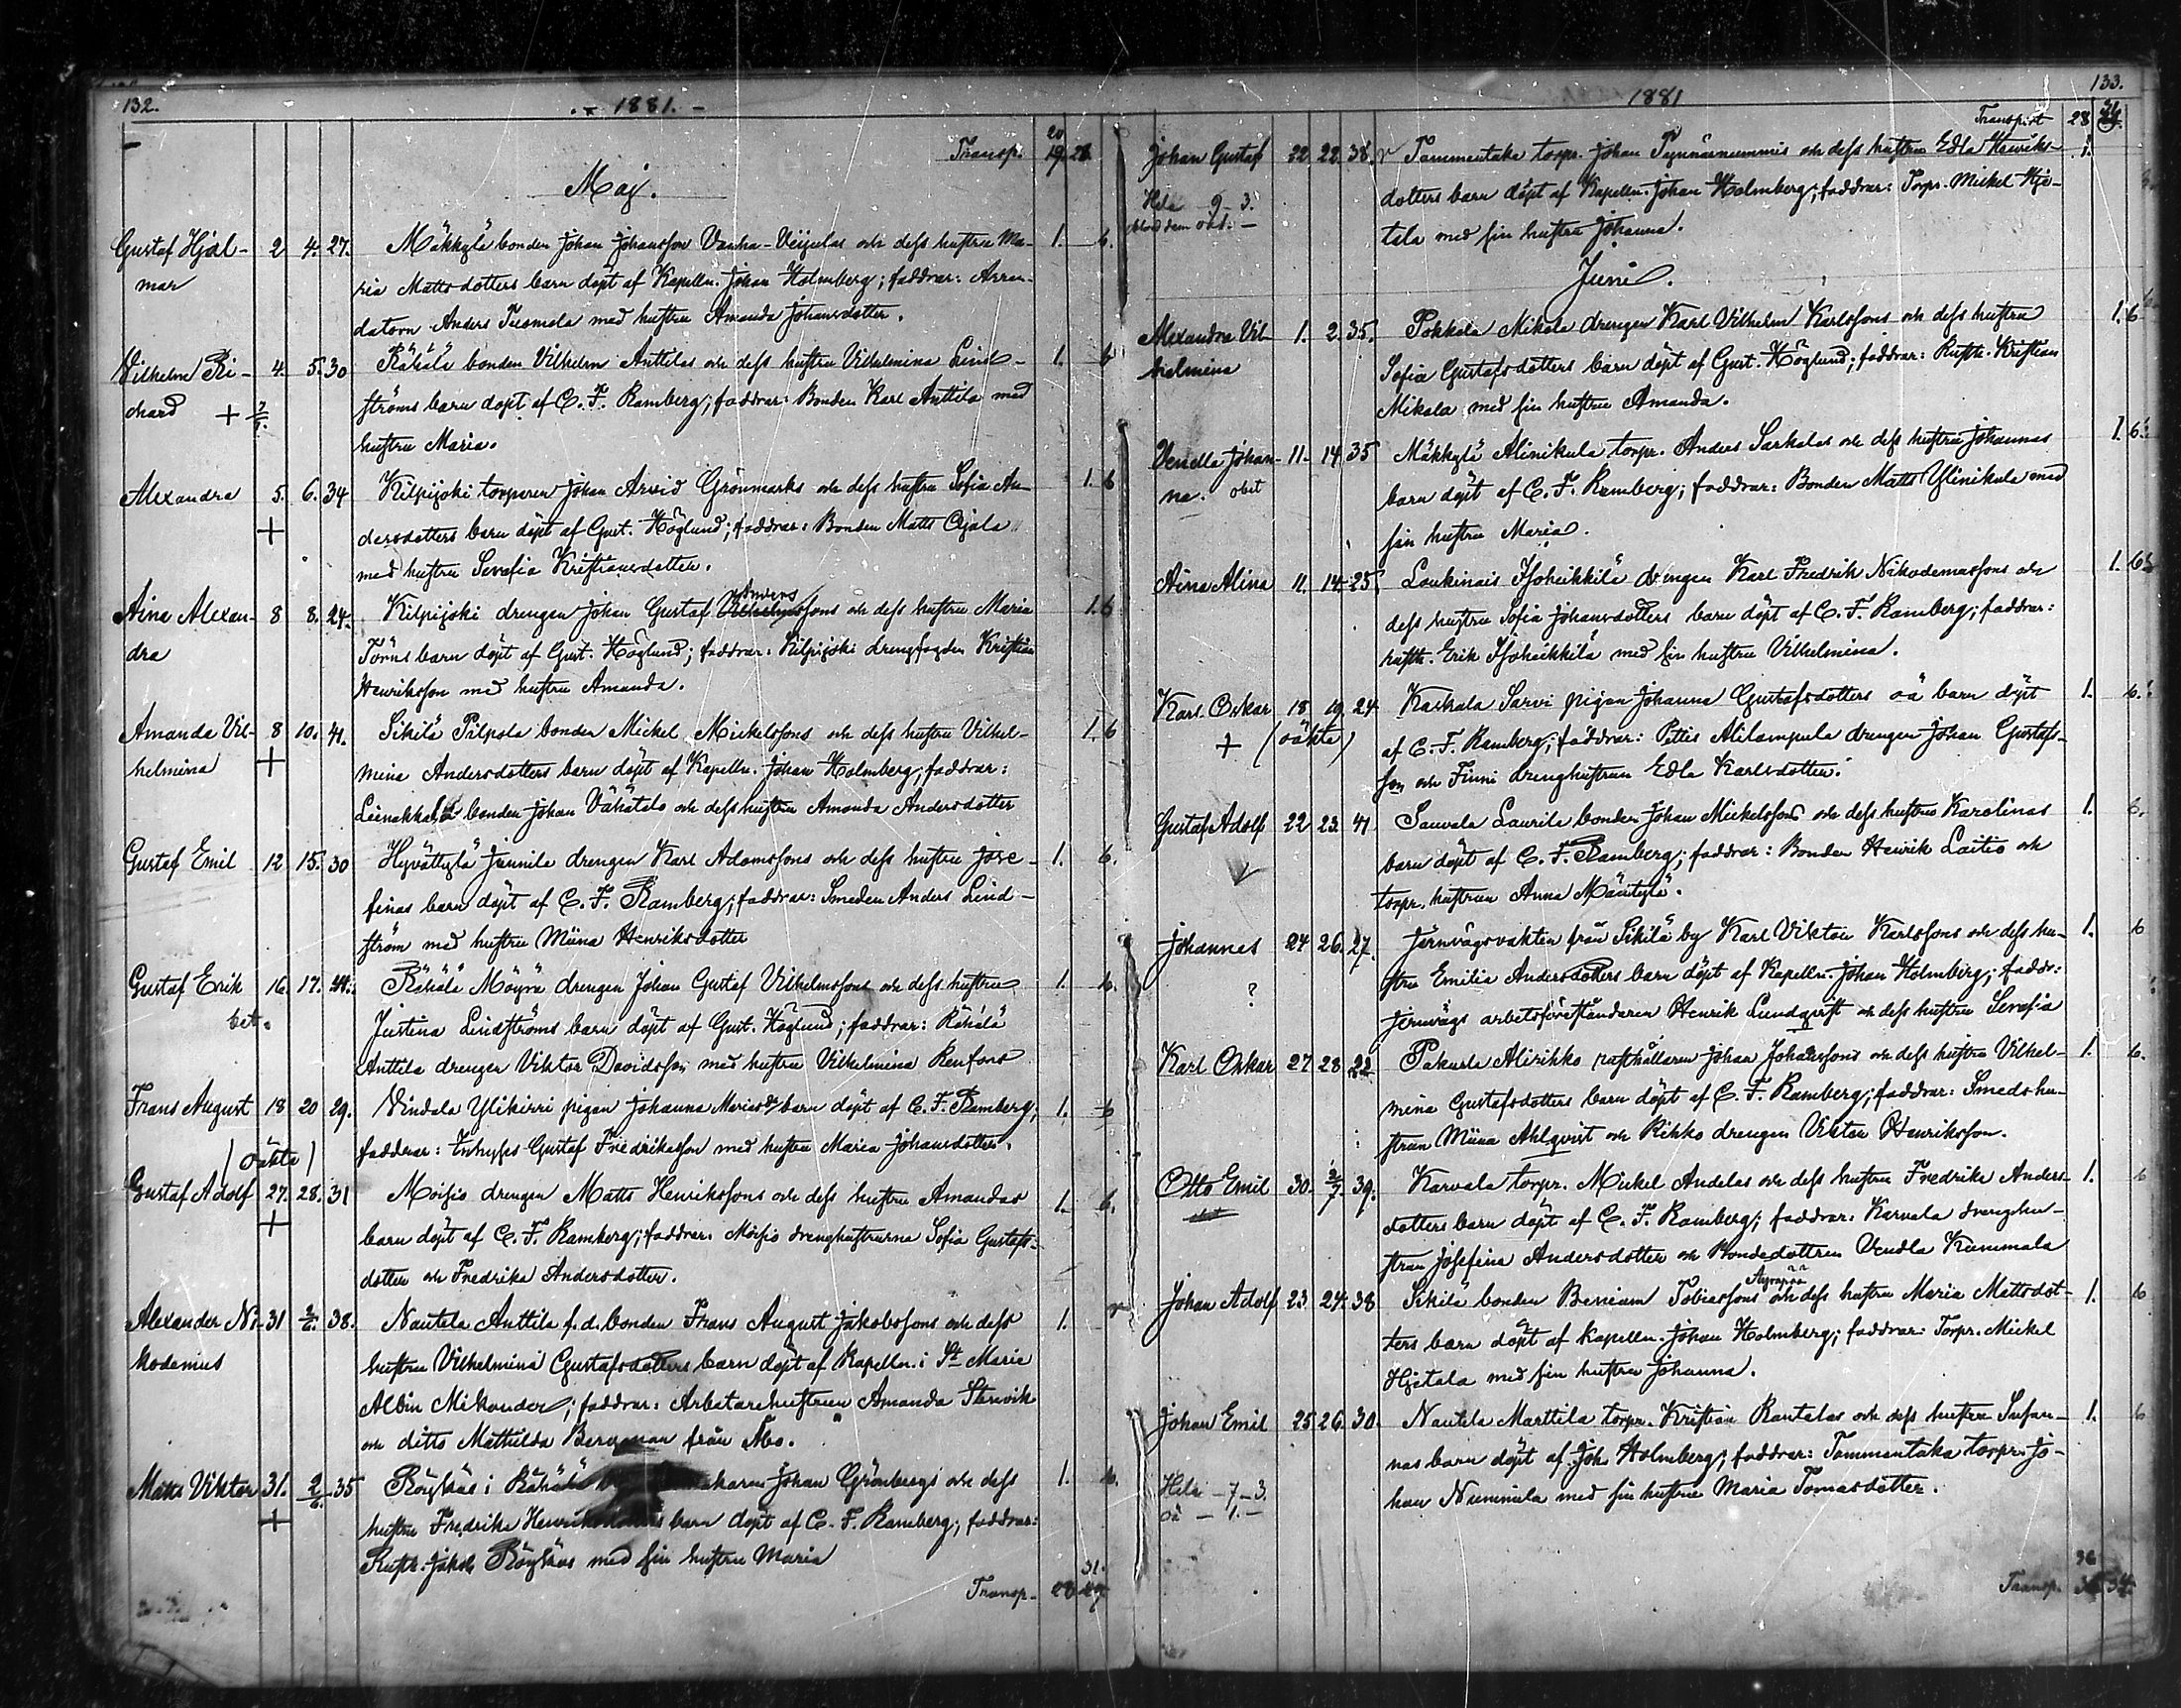 132.
1881.
Transp. 19. 28.
Maj.
Gustaf Hjal- 2 4. 27. Mäkkylä bonden Johan Johansson Vanha-Veijulas och dess hustru Ma- 1. 6.
mar ria Mattsdotters barn döpt af Kapelln. Johan Holmberg; faddrar: Arren-
datorn Anders Tuomola med hustru Amanda Johansdotter.
Vilhelm Ri- 4. 5. 30 Rähälä bonden Vilhelm Anttilas och dess hustru Vilhelmina Lind- 1. 6
chard + ströms barn döpt af C. F. Ramberg; faddrar: Bonden Karl Anttila med
hustru Maria.
Alexandra 5. 6. 34 Kilpijoki torparen Johan Arvid Grönmarks och dess hustru Sofia An- 1. 6
+ dersdotters barn döpt af Gust. Höglund; faddrar: Bonden Matts Ojala
med hustru Serafia Kristiansdotter.
Aina Alexan- 8 8. 24. Kilpijoki drengen Johan Gustaf sons och dess hustru Maria 1. 6
dra Törns barn döpt af Gust. Höglund; faddrar: Kilpijoki drengfogden Kristian
Henriksson med hustru Amanda.
Amanda Vil- 8 10. 41. Sikilä Pilpola bonden Mickel Mickelsons och dess hustru Vilhel- 1. 6
helmina + mina Andersdotters barn döpt af Kapelln. Johan Holmberg; faddrar:
bonden Johan Vähätalo och dess hustru Amanda Andersdotter
Gustaf Emil 12 15. 30 Hyvättylä Junnila drengen Karl Adamssons och dess hustru Jose- 1. 6.
finas barn döpt af C. F. Ramberg; faddrar: Smeden Anders Lind-
ström med hustru Miina Henriksdotter
Gustaf Erik 16. 17. Rähälä Möyrä drengen Johan Gustaf Vilhelmssons och dess hustru 1. 6.
Justina Lindströms barn döpt af Gust. Höglund; faddrar: Rähälä
Anttila drengen Viktor Davidsson med hustru Vilhelmina Renfors
Frans August 18 20 29. Vindala Ylikirri pigan Johanna Mariasdr barn döpt af C. F. Ramberg; 1. 6
(oäkta) faddrar: Inhyses Gustaf Fredriksson med hustru Maria Johansdotter.
Gustaf Adolf 27. 28. 31 Moisio drengen Matts Henrikssons och dess hustru Amandas 1. 6.
+ barn döpt af C. F. Ramberg; faddrar: Moisio drenghustrurna Sofia Gustafs-
dotter och Fredrika Andersdotter.
Alexander Ni- 31 2/6. 38. Nautela Anttila f. d. bonden Frans August Jakobssons och dess 1.
kodemus hustru Vilhelmina Gustafsdotters barn döpt af Kapelln. i St. Marie
Albin Mikander; faddrar: Arbetarehustrun Amanda Stenvik
och ditto Mathilda Bergman från Åbo.
Matts Viktor 31. 2/6. 35 Röyhäs i Rähälä Johan Grönbergs och dess 1. 6.
+ hustru Fredrika barn döpt af C. F. Ramberg; faddrar:
Jakob Röyhäs med sin hustru Maria
31.
Transp. 28
133.
1881
Transport 28
Johan Gustaf 22 22 38. Tammentaka torpr. Johan och dess hustru Edla Henriks- 1.
Hela 9-3. dotters barn döpt af Kapelln. Johan Holmberg; faddrar: Torpr. Mickel Hje-
tala med sin hustru Johanna.
Juni.
Alexandra Vil- 1. 2. 35. Pokkola Mikola drengen Karl Vilhelm Karlssons och dess hustru 1. 6
helmina Sofia Gustafsdotters barn döpt af Gust. Höglund; faddrar: Rusth. Kristian
Mikola med sin hustru Amanda.
Vendla Johan- 11. 14 35 Mäkkylä Alinikula torpr. Anders Sarkalas och dess hustru Johannas 1. 6.
na. obet barn döpt af C. F. Ramberg; faddrar: Bonden Matts Ylinikula med
sin hustru Maria.
Aina Alina 11. 14. 25. Loukinais Isoheikkilä drengen Karl Fredrik Nikodemussons och 1. 6
dess hustru Sofia Johansdotters barn döpt af C. F. Ramberg; faddrar:
rusth. Erik Isoheikkilä med sin hustru Vilhelmina.
Karl Oskar 18 19 24 Kaskala Sarvi pigan Johanna Gustafsdotters oä barn döpt 1. 6.
+ (oäkta) af C. F. Ramberg; faddrar: Pettis Alilampula drengen Johan Gustafs-
son och Finni drenghustrun Edla Karlsdotter.
Gustaf Adolf 22 23. 41 Sauvala Laurila bonden Johan Mickelssons och dess hustru Karolinas 1. 6.
barn döpt af C. F. Ramberg; faddrar: Bonden Henrik Laitio och
torpr. hustrun Anna Mäntylä.
Johannes 24 26. 27. Jernvägsvakten från Sikilä by Karl Viktor Karlssons och dess hu- 1. 6
? stru Emilia Andersdotters barn döpt af Kapelln. Johan Holmberg; faddr:
Jernvägs arbetsföreståndaren Henrik Lundqvist och dess hustru Serafia
Karl Oskar 27 28 22 Pakurla Alirihko rusthållaren Johan Johanssons och dess hustru Vilhel- 1. 6.
mina Gustafsdotters barn döpt af C. F. Ramberg; faddrar: Smedshu-
strun Miina Ahlqvist och Rihko drengen Viktor Henriksson.
Otto Emil 30. 2/7 39. Karvala torpr. Mickel Andelas och dess hustru Fredrika Anders- 1. 6
dotters barn döpt af C. F. Ramberg; faddrar: Karvala drenghu-
strun Josefina Andersdotter och Bondedottren Vendla Kummala
Johan Adolf 23. 24. 38 Sikilä bonden Beniam Tobiassons och dess hustru Maria Mattsdot- 1. 6
ters barn döpt af Kapelln. Johan Holmberg; faddrar: Torpr. Mickel
Hjetala med sin hustru Johanna.
Johan Emil 25 26. 30. Nautela Marttila torpr. Kristian Rantalas och dess hustru Susan- 1. 6
nas barn döpt af Joh. Holmberg; faddrar: Tammentaka torpr. Jo-
Hela -7-3. han Nummila med sin hustru Maria Tomasdotter.
oä - 1. -
36
Transp. 34.